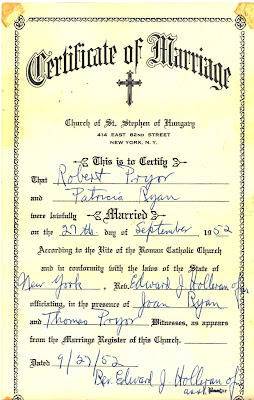 Certificate of Marriage
Church of St. Stephen of Hungary
414 EAST 82ND STREET
NEW YORK, N.Y.
This is to Certify
That Robert Pryor
and Patricia Ryan
were lawfully Married
on the 27th day of September 1952
According to the Rite of the Roman Catholic Church
and in conformity with the laws of the State of
New York, Rev. Edward J. Holleran ofm
officiating, in the presence of Joan Ryan
and Thomas Pryor Witnesses, as appears
from the Marriage Register of this Church.
Dated 9/27/52
Rev. Edward J. Holleran ofm
asst.